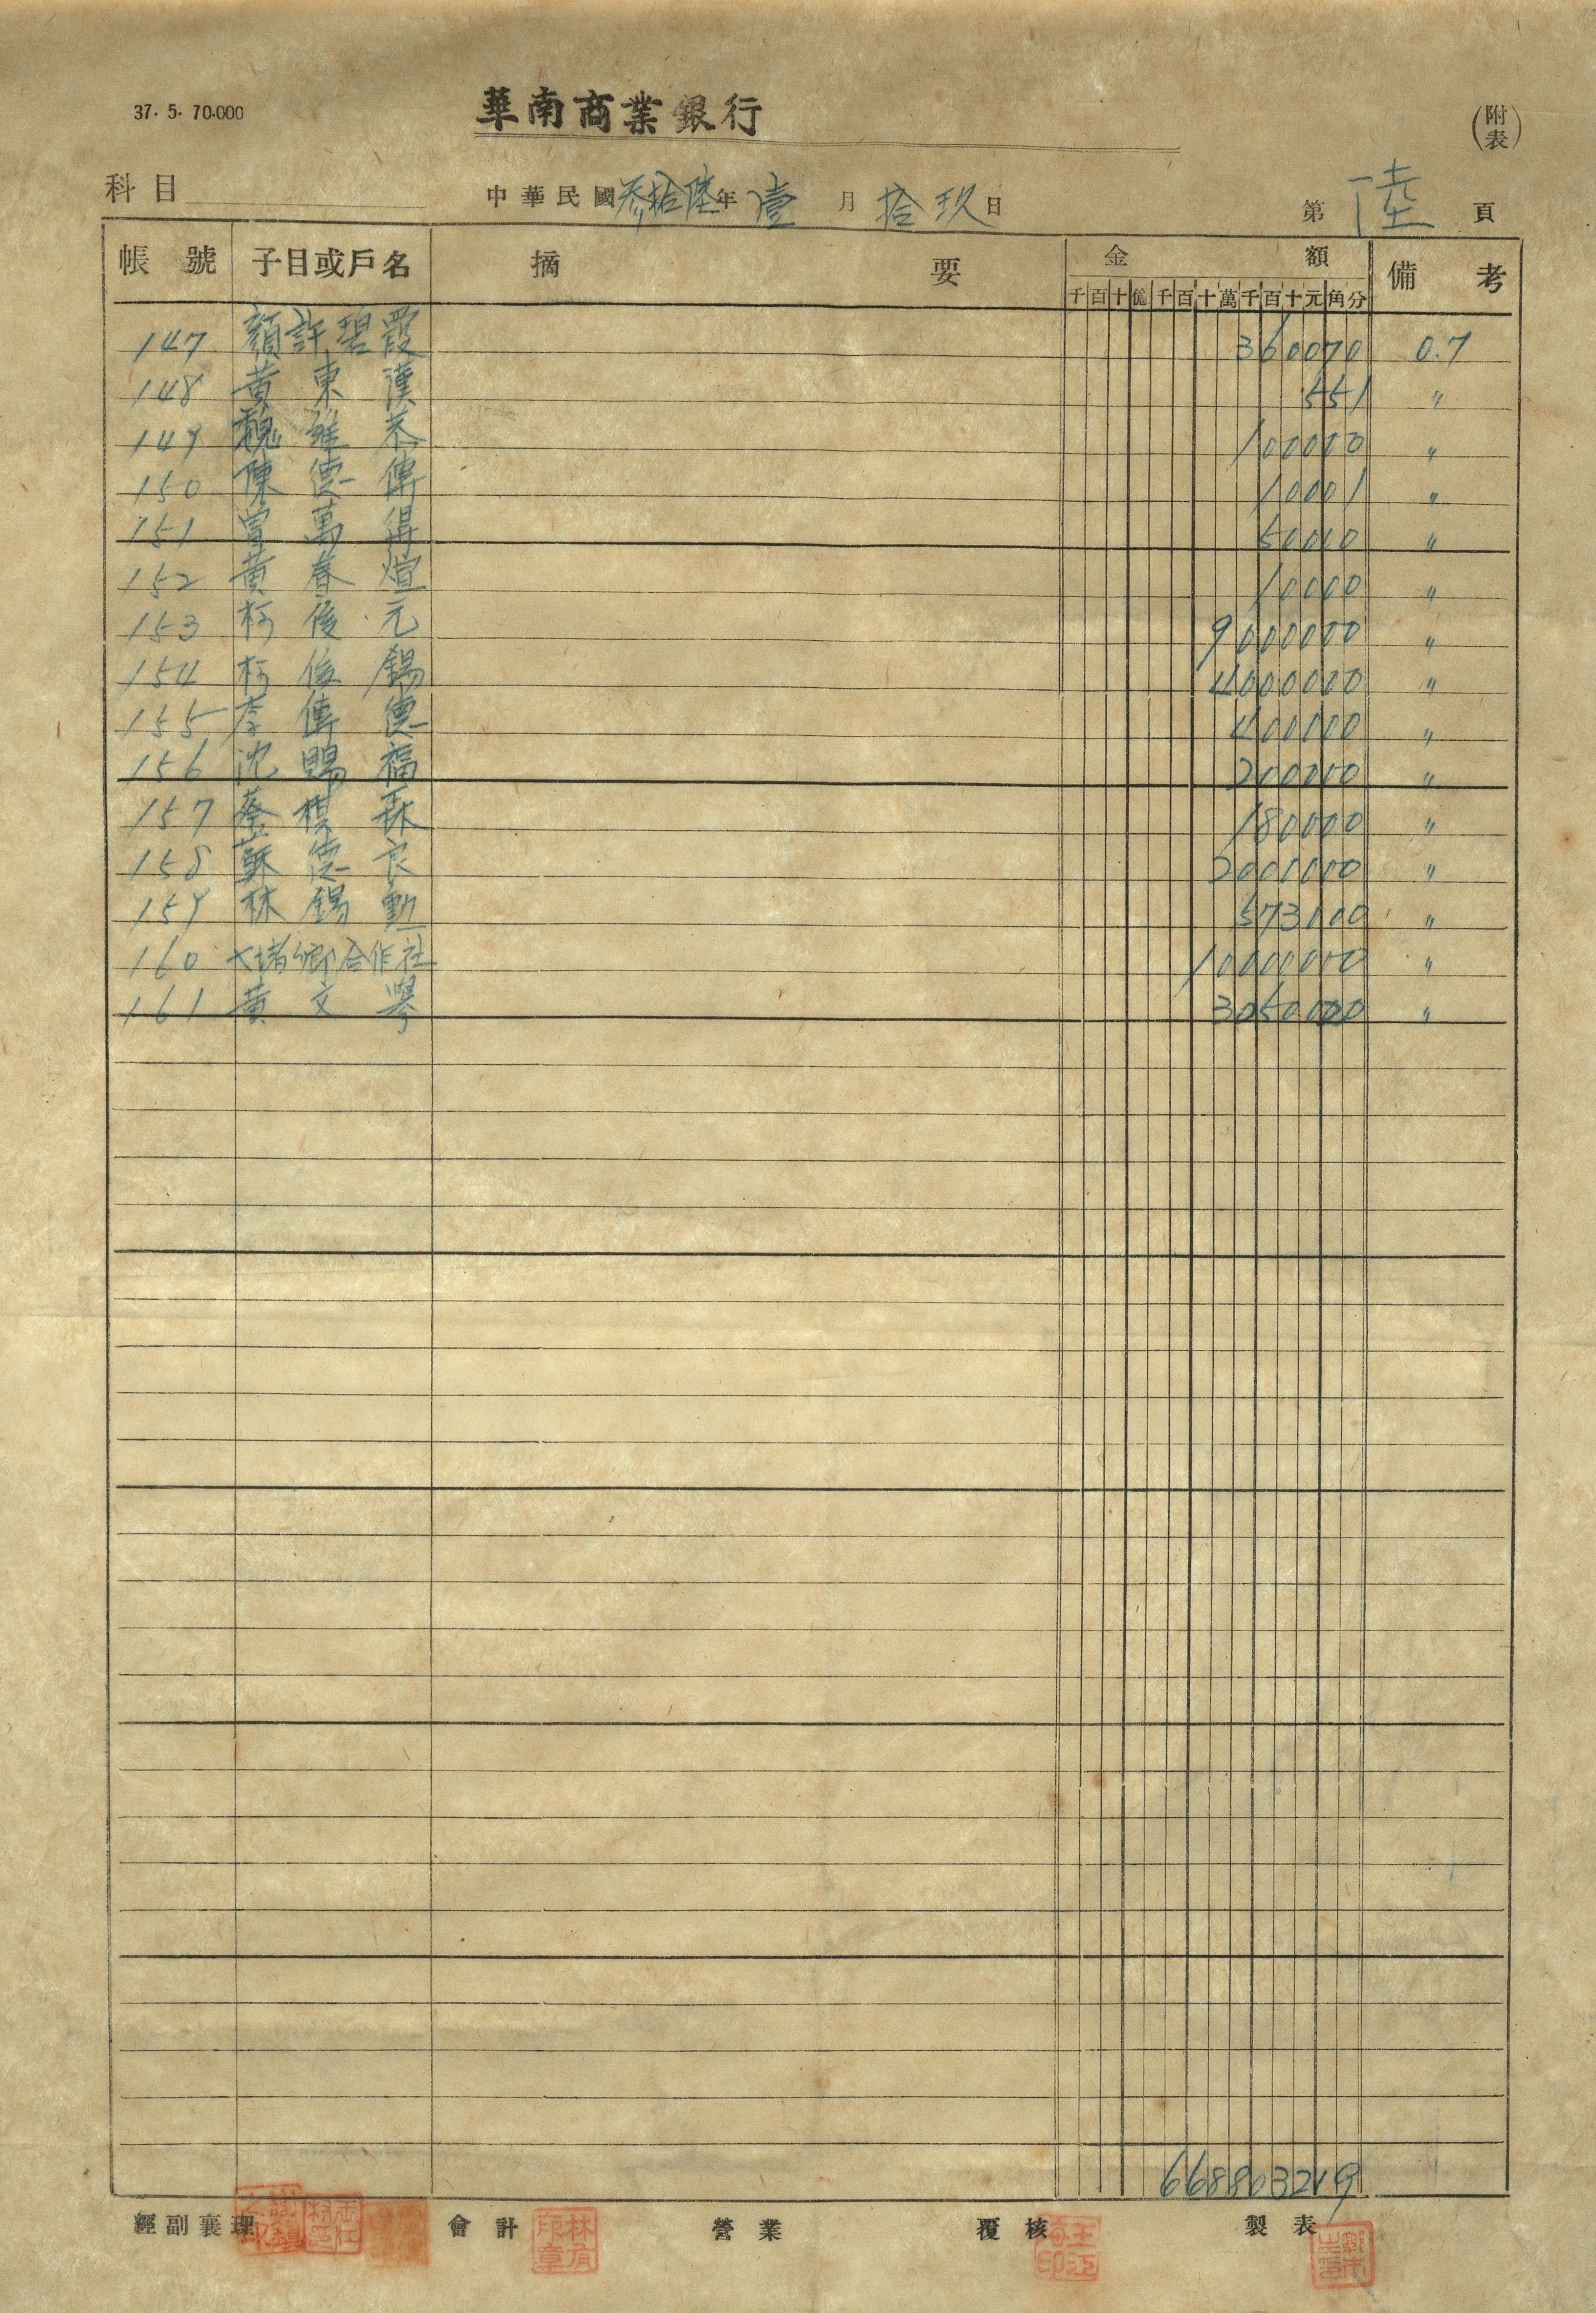 37. 5. 70.000
華南商業銀行
(附表)
科目
中華民國叁拾陸年壹月拾玖日
第陸頁
帳號 子目或戶名 摘要 金額 備考
千百十億千百十萬千百十元角分
147 顏許碧霞 360070 0.7
148 黃東漢 551 〃
149 魏維恭 100000 〃
150 陳德傳 10001 〃
151 曾萬得 50010 〃
152 黃春煊 10000 〃
153 柯後元 9000000 〃
154 柯位錫 4000000 〃
155 李傳德 400000 〃
156 沈賜福 200000 〃
157 蔡棋森 180000 〃
158 蘇德良 2000000 〃
159 林錫勳 573000 〃
160 七堵鄉合作社 10000000 〃
161 黃文舉 3050000 〃
668803219
經副襄理 會計 營業 覆核 製表